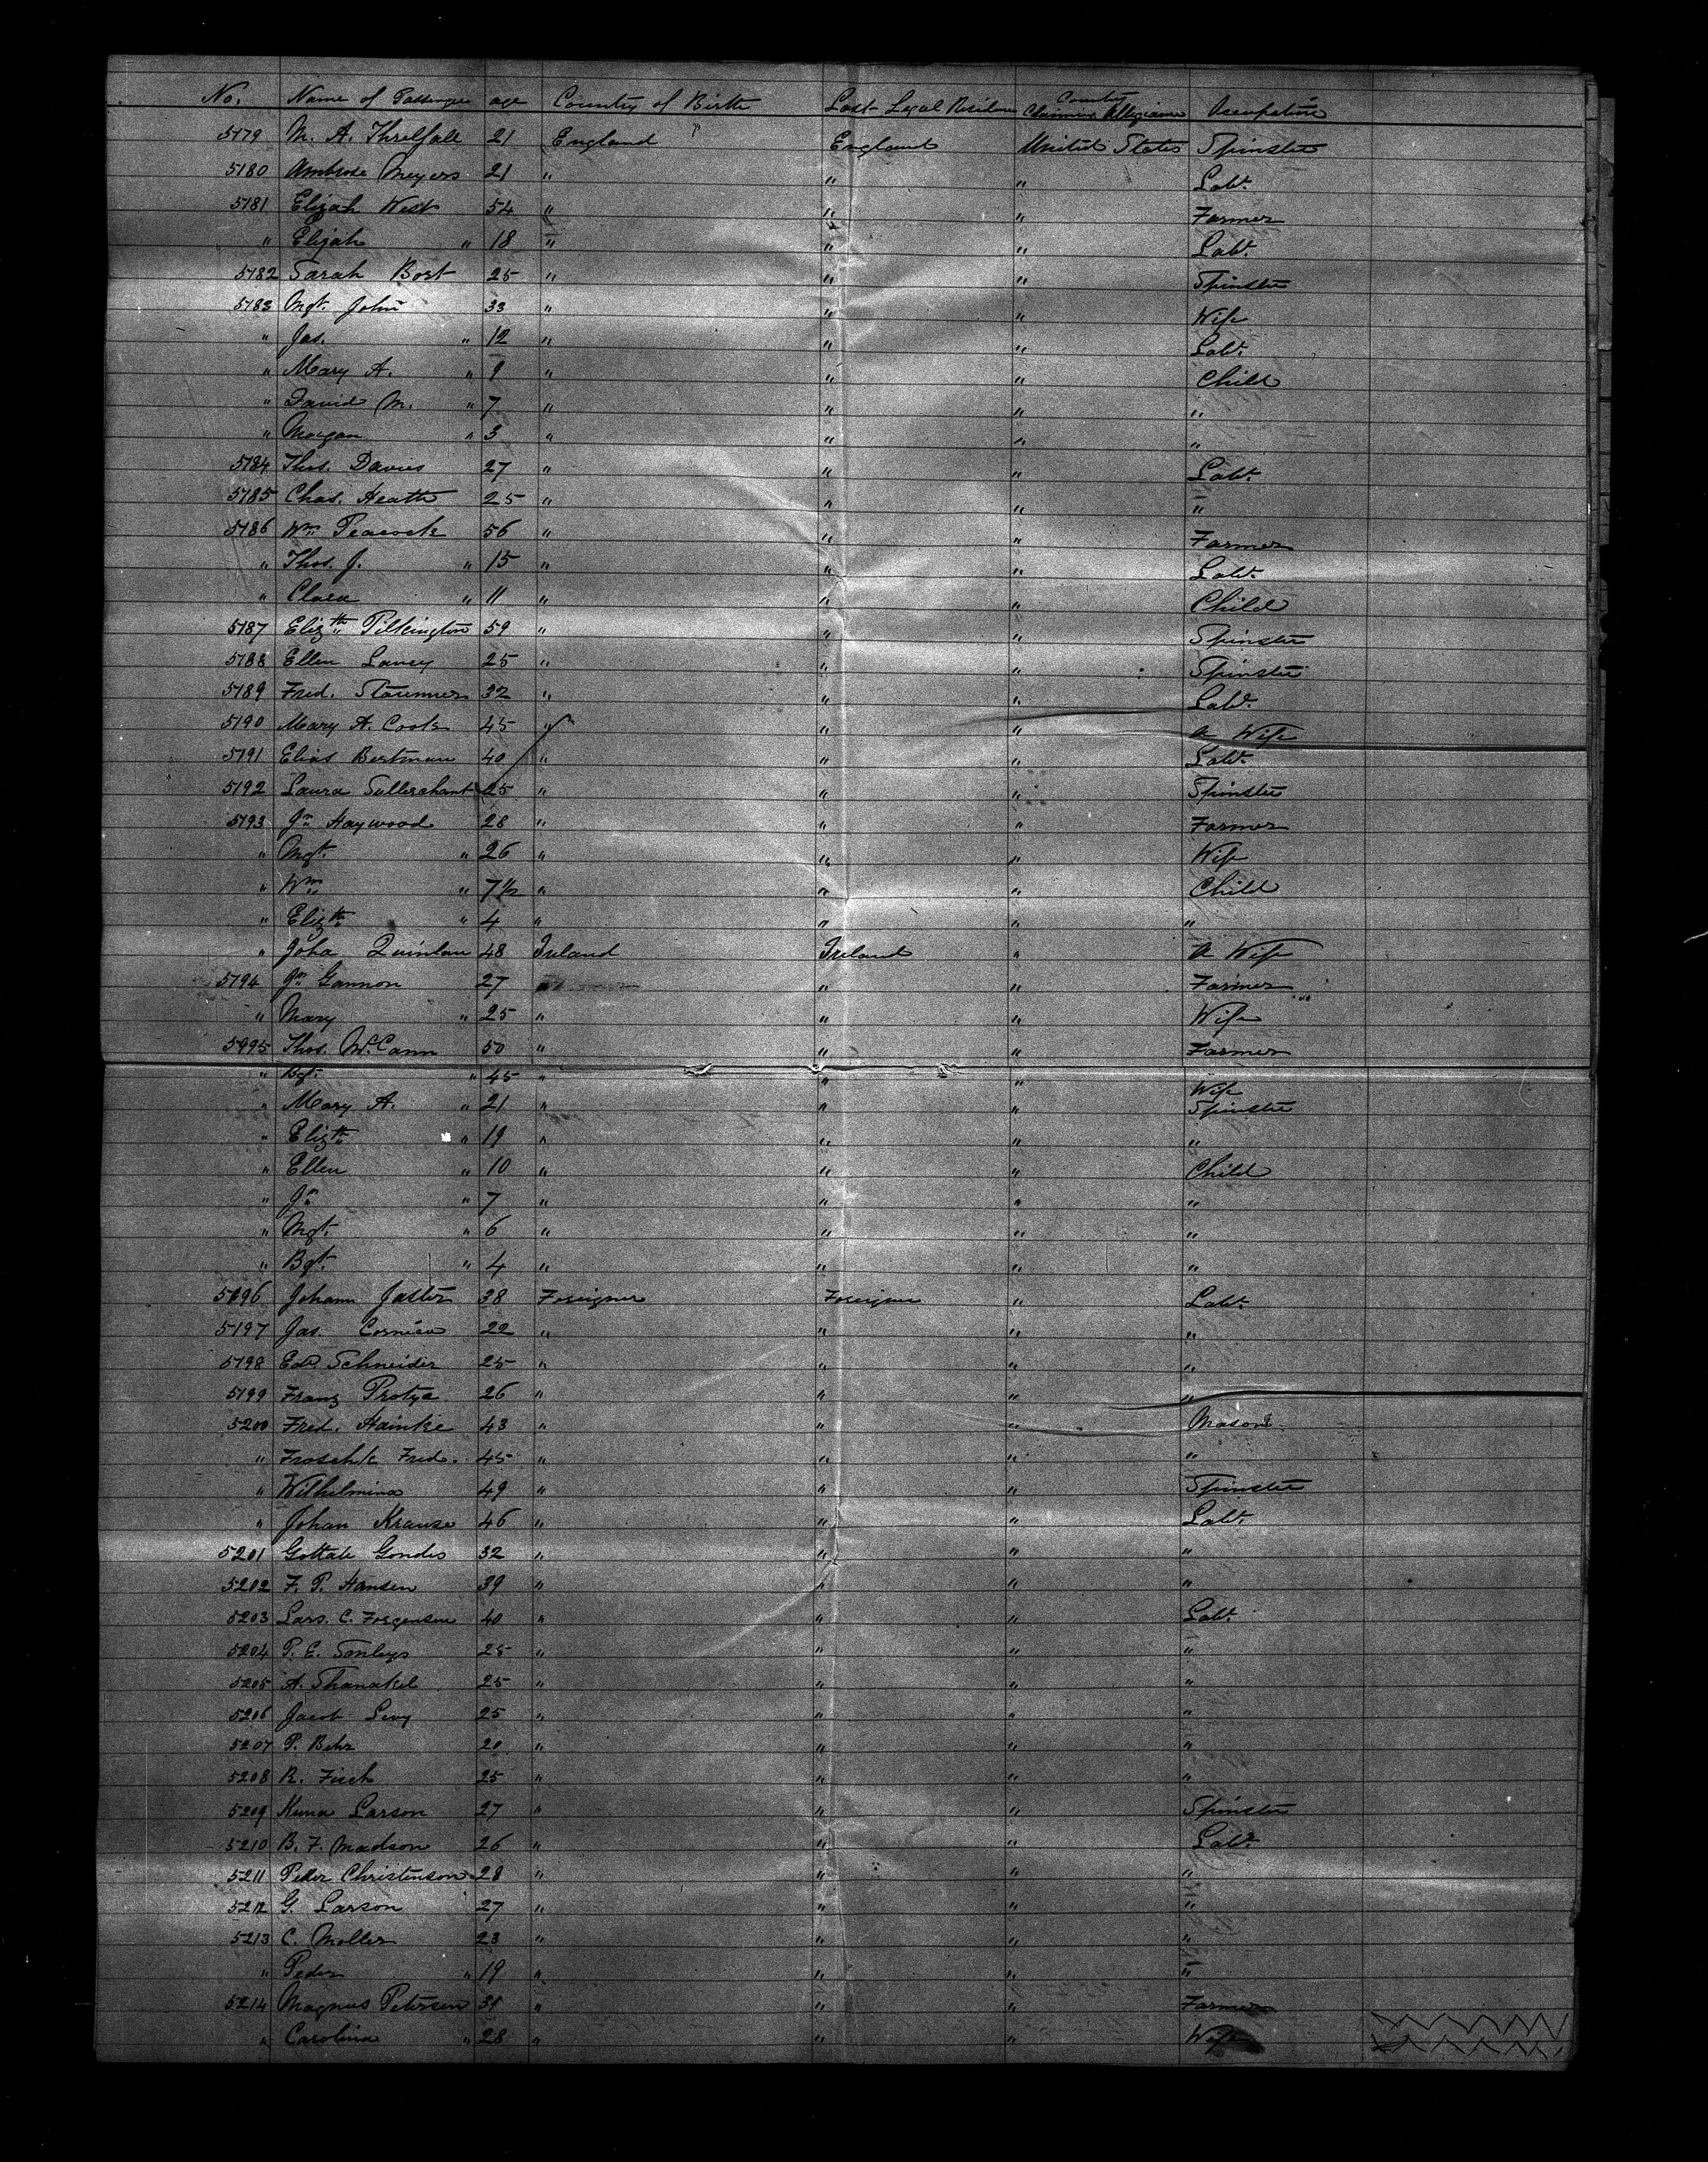 No. Name of Passenger age Country of Birth Last Legal Residence Country Claiming Allegiance Occupation
5179 M. A. Threlfall 21 England England United States Spinster
5180 Ambrose Meyers 21 " " " Labr.
5181 Elijah West 54 " " " Farmer
" Elijah " 18 " " " Labr.
5182 Sarah Bost 25 " " " Spinster
5183 Mgt. John 33 " " " Wife
" Jas. " 12 " " " Labr.
" Mary A. " 9 " " " Child
" David M. " 7 " " " "
" Morgan " 3 " " " "
5184 Thos. Davies 27 " " " Labr.
5185 Chas. Heath 25 " " " "
5186 Wm. Peacock 56 " " " Farmer
" Thos. J. " 15 " " " Labr.
" Clara " 11 " " " Child
5187 Elizth Pilkington 59 " " " Spinster
5188 Ellen Laney 25 " " " Spinster
5189 Fred. 32 " " " Labr.
5190 Mary A. Cook 45 " " " A Wife
5191 Elias Bertman 40 " " " Labr.
5192 Laura 25 " " " Spinster
5193 Jn Haywood 28 " " " Farmer
" Mgt. " 26 " " " Wife
" Wm " 7 1/2 " " " Child
" Elizth " 4 " " " "
" Joha Quinlan 48 Ireland Ireland " A Wife
5194 Jn Gannon 27 " " Farmer
" Mary " 25 " " " Wife
5995 Thos. McCann 50 " " " Farmer
" Bgt. " 45 " " " Wife
" Mary A. " 21 " " " Spinster
" Elizth " 19 " " " "
" Ellen " 10 " " " Child
" Jn " 7 " " " "
" Mgt. " 6 " " " "
" Bgt. " 4 " " " "
5196 Johann Jaster 38 Foreigner Foreigner " Labr.
5197 Jas. 22 " " " "
5198 Edd Schneider 25 " " " "
5199 Franz Protze 26 " " " "
5200 Fred. Hainke 43 " " " Mason
" Froschk Fred. 45 " " " "
" Wilhelmina 49 " " " Spinster
" Johan Krause 46 " " " Labr.
5201 Gondes 32 " " " "
5202 F. P. Hansen 39 " " " "
5203 Lars. C. Forgensen 40 " " " Labr.
5204 P. E. 25 " " " "
5205 A. Thanakel 25 " " " "
5206 Jacob Levy 25 " " " "
5207 P. Behr 20 " " " "
5208 R. Fisch 25 " " " "
5209 Kuna Larson 27 " " " Spinster
5210 B. F. Madson 26 " " " Labr.
5211 Peder Christenson 28 " " " "
5212 G. Larson 27 " " " "
5213 C. Moller 23 " " " "
" Peder " 19 " " " "
5214 Magnus Petersen 31 " " " Farmer
" Carolina " 28 " " " Wife